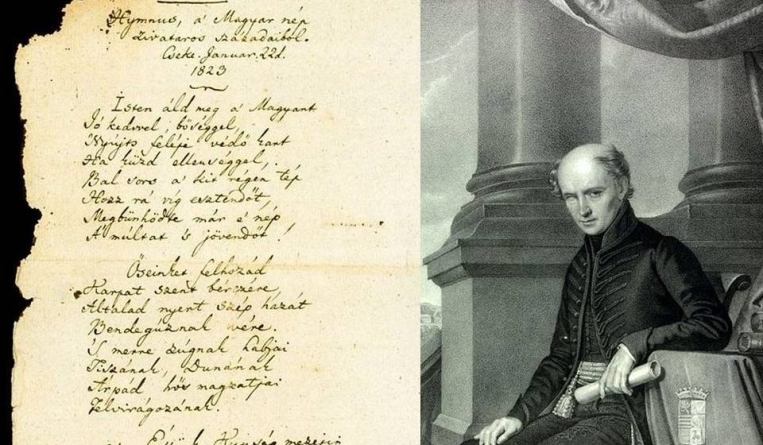 Hymnus, a' Magyar nép
zivataros századaiból.
Cseke. Januar. 22d.
1823
Isten áld meg a' Magyart
Jó kedvvel, bőséggel,
Nyújts feléje védő kart
Ha küzd ellenséggel,
Bal sors a' kit régen tép
Hozz rá víg esztendőt,
Megbűnhődte már e' nép
A' múltat 's jövendőt!
Őseinket felhozád
Kárpát szent bérczére,
Általad nyert szép hazát
Bendegúznak vére.
'S merre zúgnak habjai
Tiszának, Dunának
Árpád hős magzatjai
Felvirágozának.
Kunság mezein